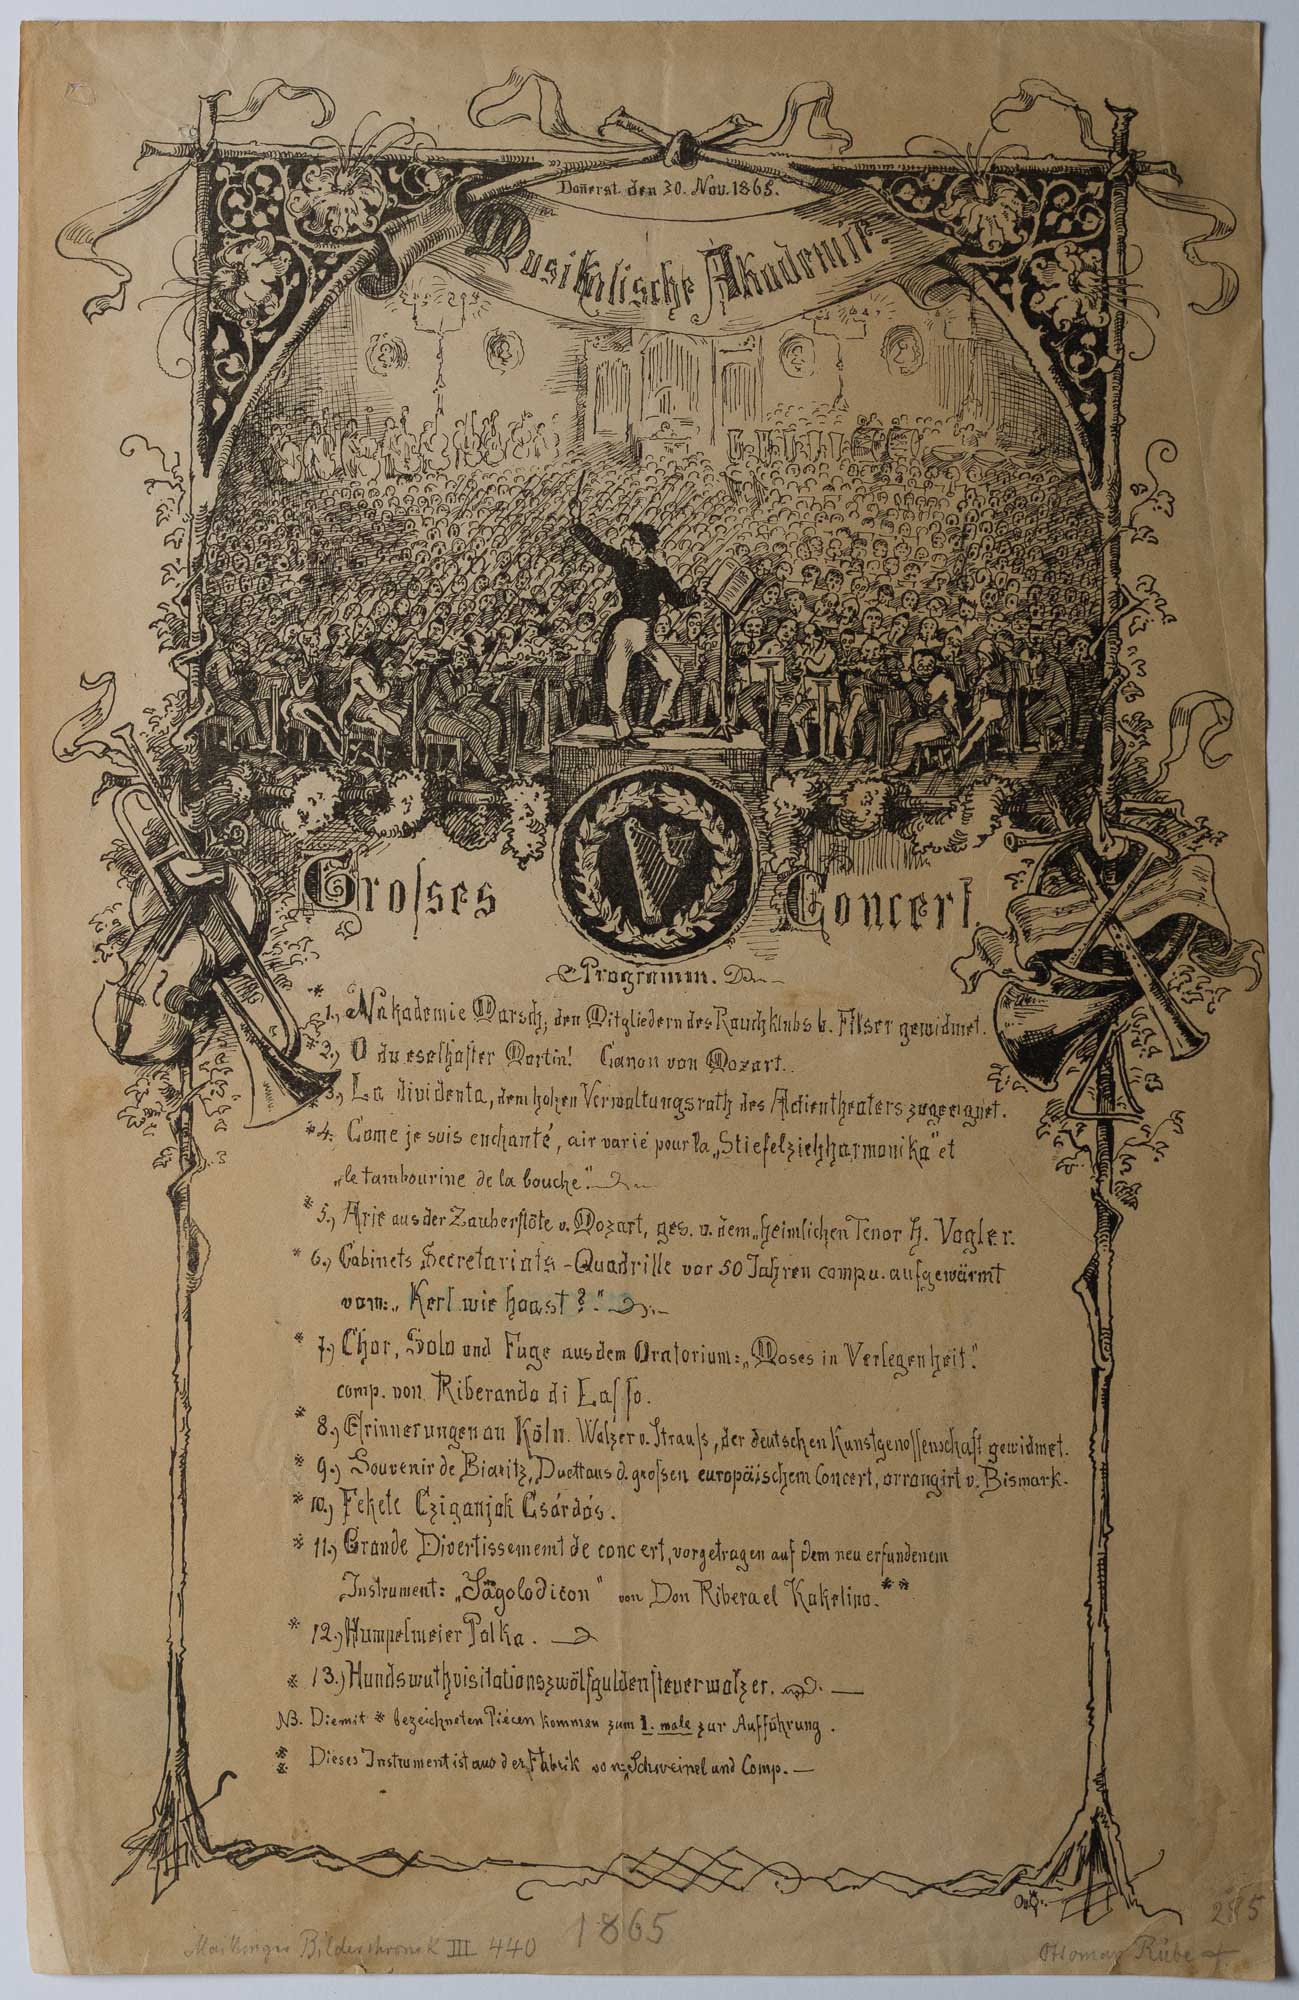 Don̄erst. den 30. Nov. 1865.
Musikalische Akademie
Grosses Concert.
Programm.
* 1.) Aakademie Marsch, den Mitgliedern des Rauchklubs b. Filser gewidmet.
* 2.) O du eselhafter Martin! Canon von Mozart.
* 3.) La dividenta, dem hohen Verwaltungsrath des Actientheaters zugeeignet.
* 4. Come je suis enchanté, air varié pour la „Stiefelziehharmonika" et
„le tambourine de la bouche".
* 5.) Arie aus der Zauberflöte v. Mozart, ges. v. dem „heimlichen Tenor H. Vogler.
* 6.) Cabinets Secretariats-Quadrille vor 50 Jahren comp u. aufgewärmt
vom: „Kerl wie haast?"
* 7.) Chor, Solo und Fuge aus dem Oratorium: „Moses in Verlegenheit".
comp. von Riberando di Lasso.
* 8.) Erinnerungen an Köln. Walzer v. Strauss, der deutschen Kunstgenossenschaft gewidmet.
* 9.) Souvenir de Biaritz, Duett aus d. grossen europäischem Concert, arrangirt v. Bismark.
* 10.) Fekete Cziganjak Csárdás.
* 11.) Grande Divertissememt de concert, vorgetragen auf dem neu erfundenem
Instrument: „Sägolodicon" von Don Ribera el Kakelino. **
* 12.) Humpelmeier Polka.
* 13.) Hundswuthvisitationszwölfguldensteuerwalzer.
NB. Die mit * bezeichneten Piécen kommen zum 1. male zur Aufführung.
** Dieses Instrument ist aus der Fabrik von: Schweinel und Comp.
285
1865
Maillinger Bilderchronik III 440
Ottomar Rübe